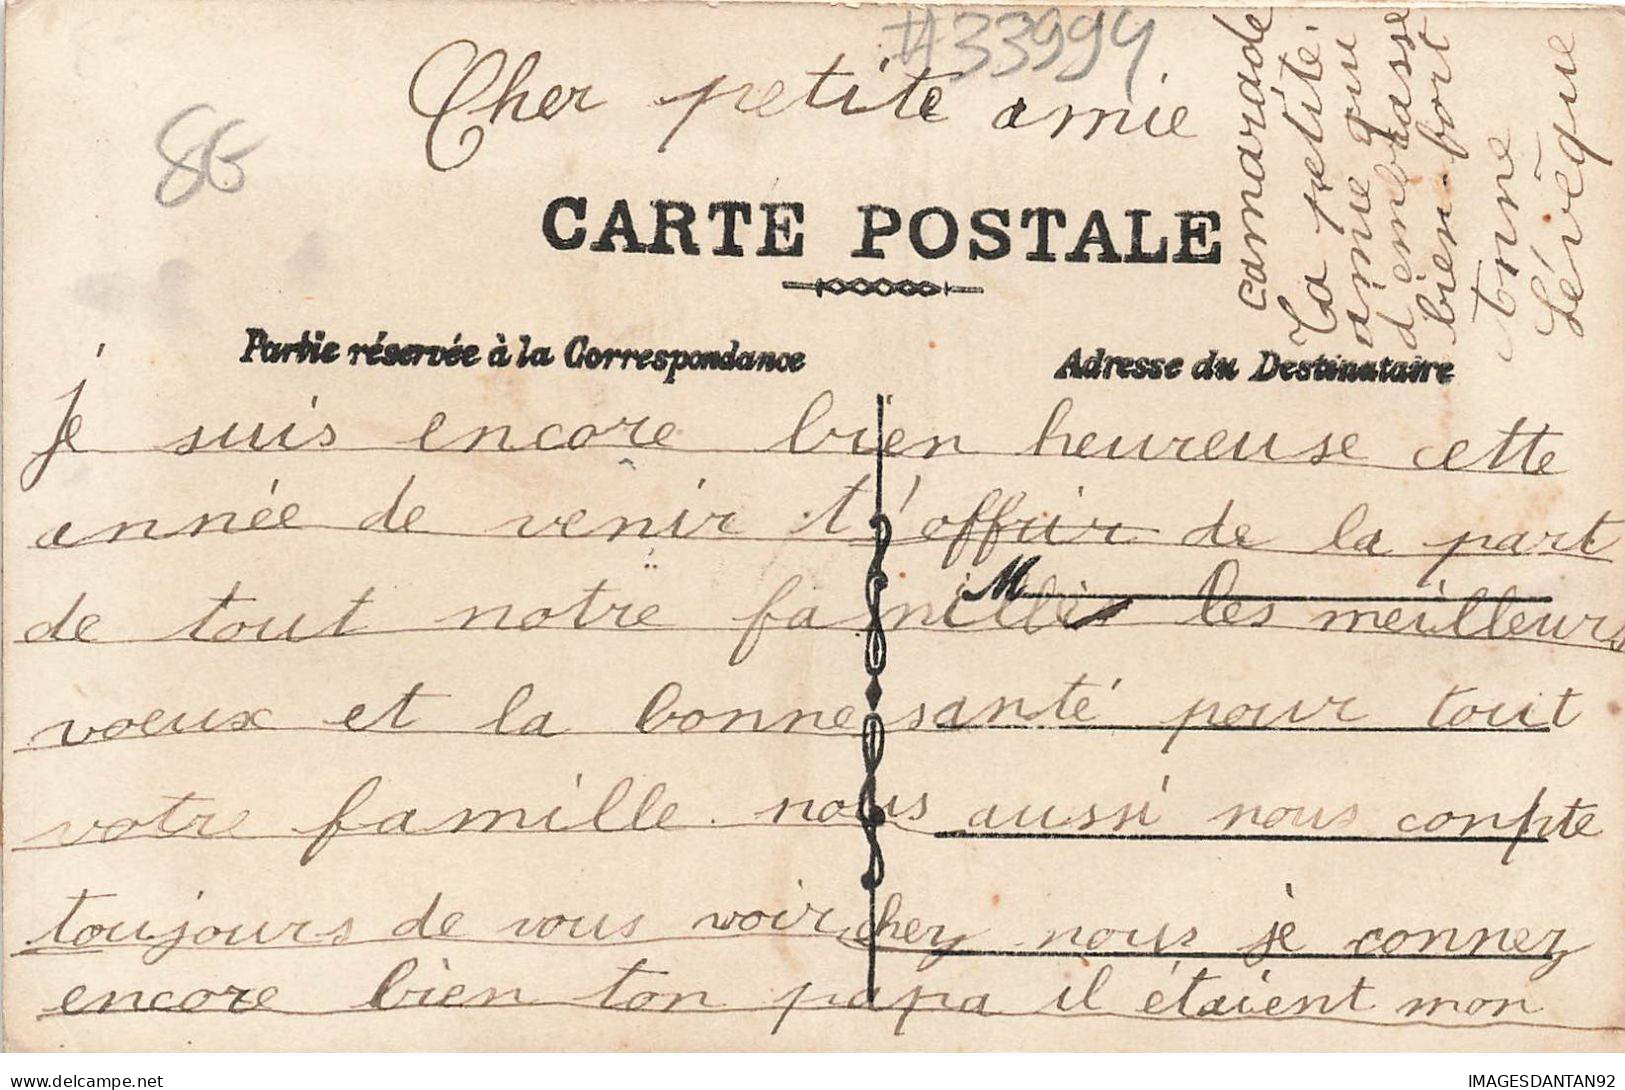 #33994
86
Cher petite amie
CARTE POSTALE
Partie réservée à la Correspondance
Adresse du Destinataire
M
Je suis encore bien heureuse cette
année de venir t'offrir de la part
de tout notre famille les meilleurs
voeux et la bonne santé pour tout
votre famille. nous aussi nous conpte
toujours de vous voir chez nous je connez
encore bien ton papa il étaient mon
camarade
Ta petite
amie qui
d'embrasse
bien fort
Anne
Lévêque
delcampe.net
IMAGESDANTAN92